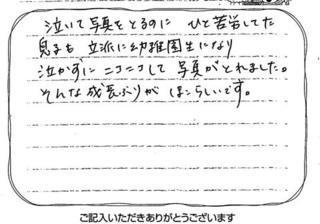 泣いて写真をとるのに ひと苦労してた
息子も 立派に幼稚園生になり
泣かずに ニコニコして 写真がとれました。
そんな成長ぶりが ほこらしいです。
ご記入いただきありがとうございます